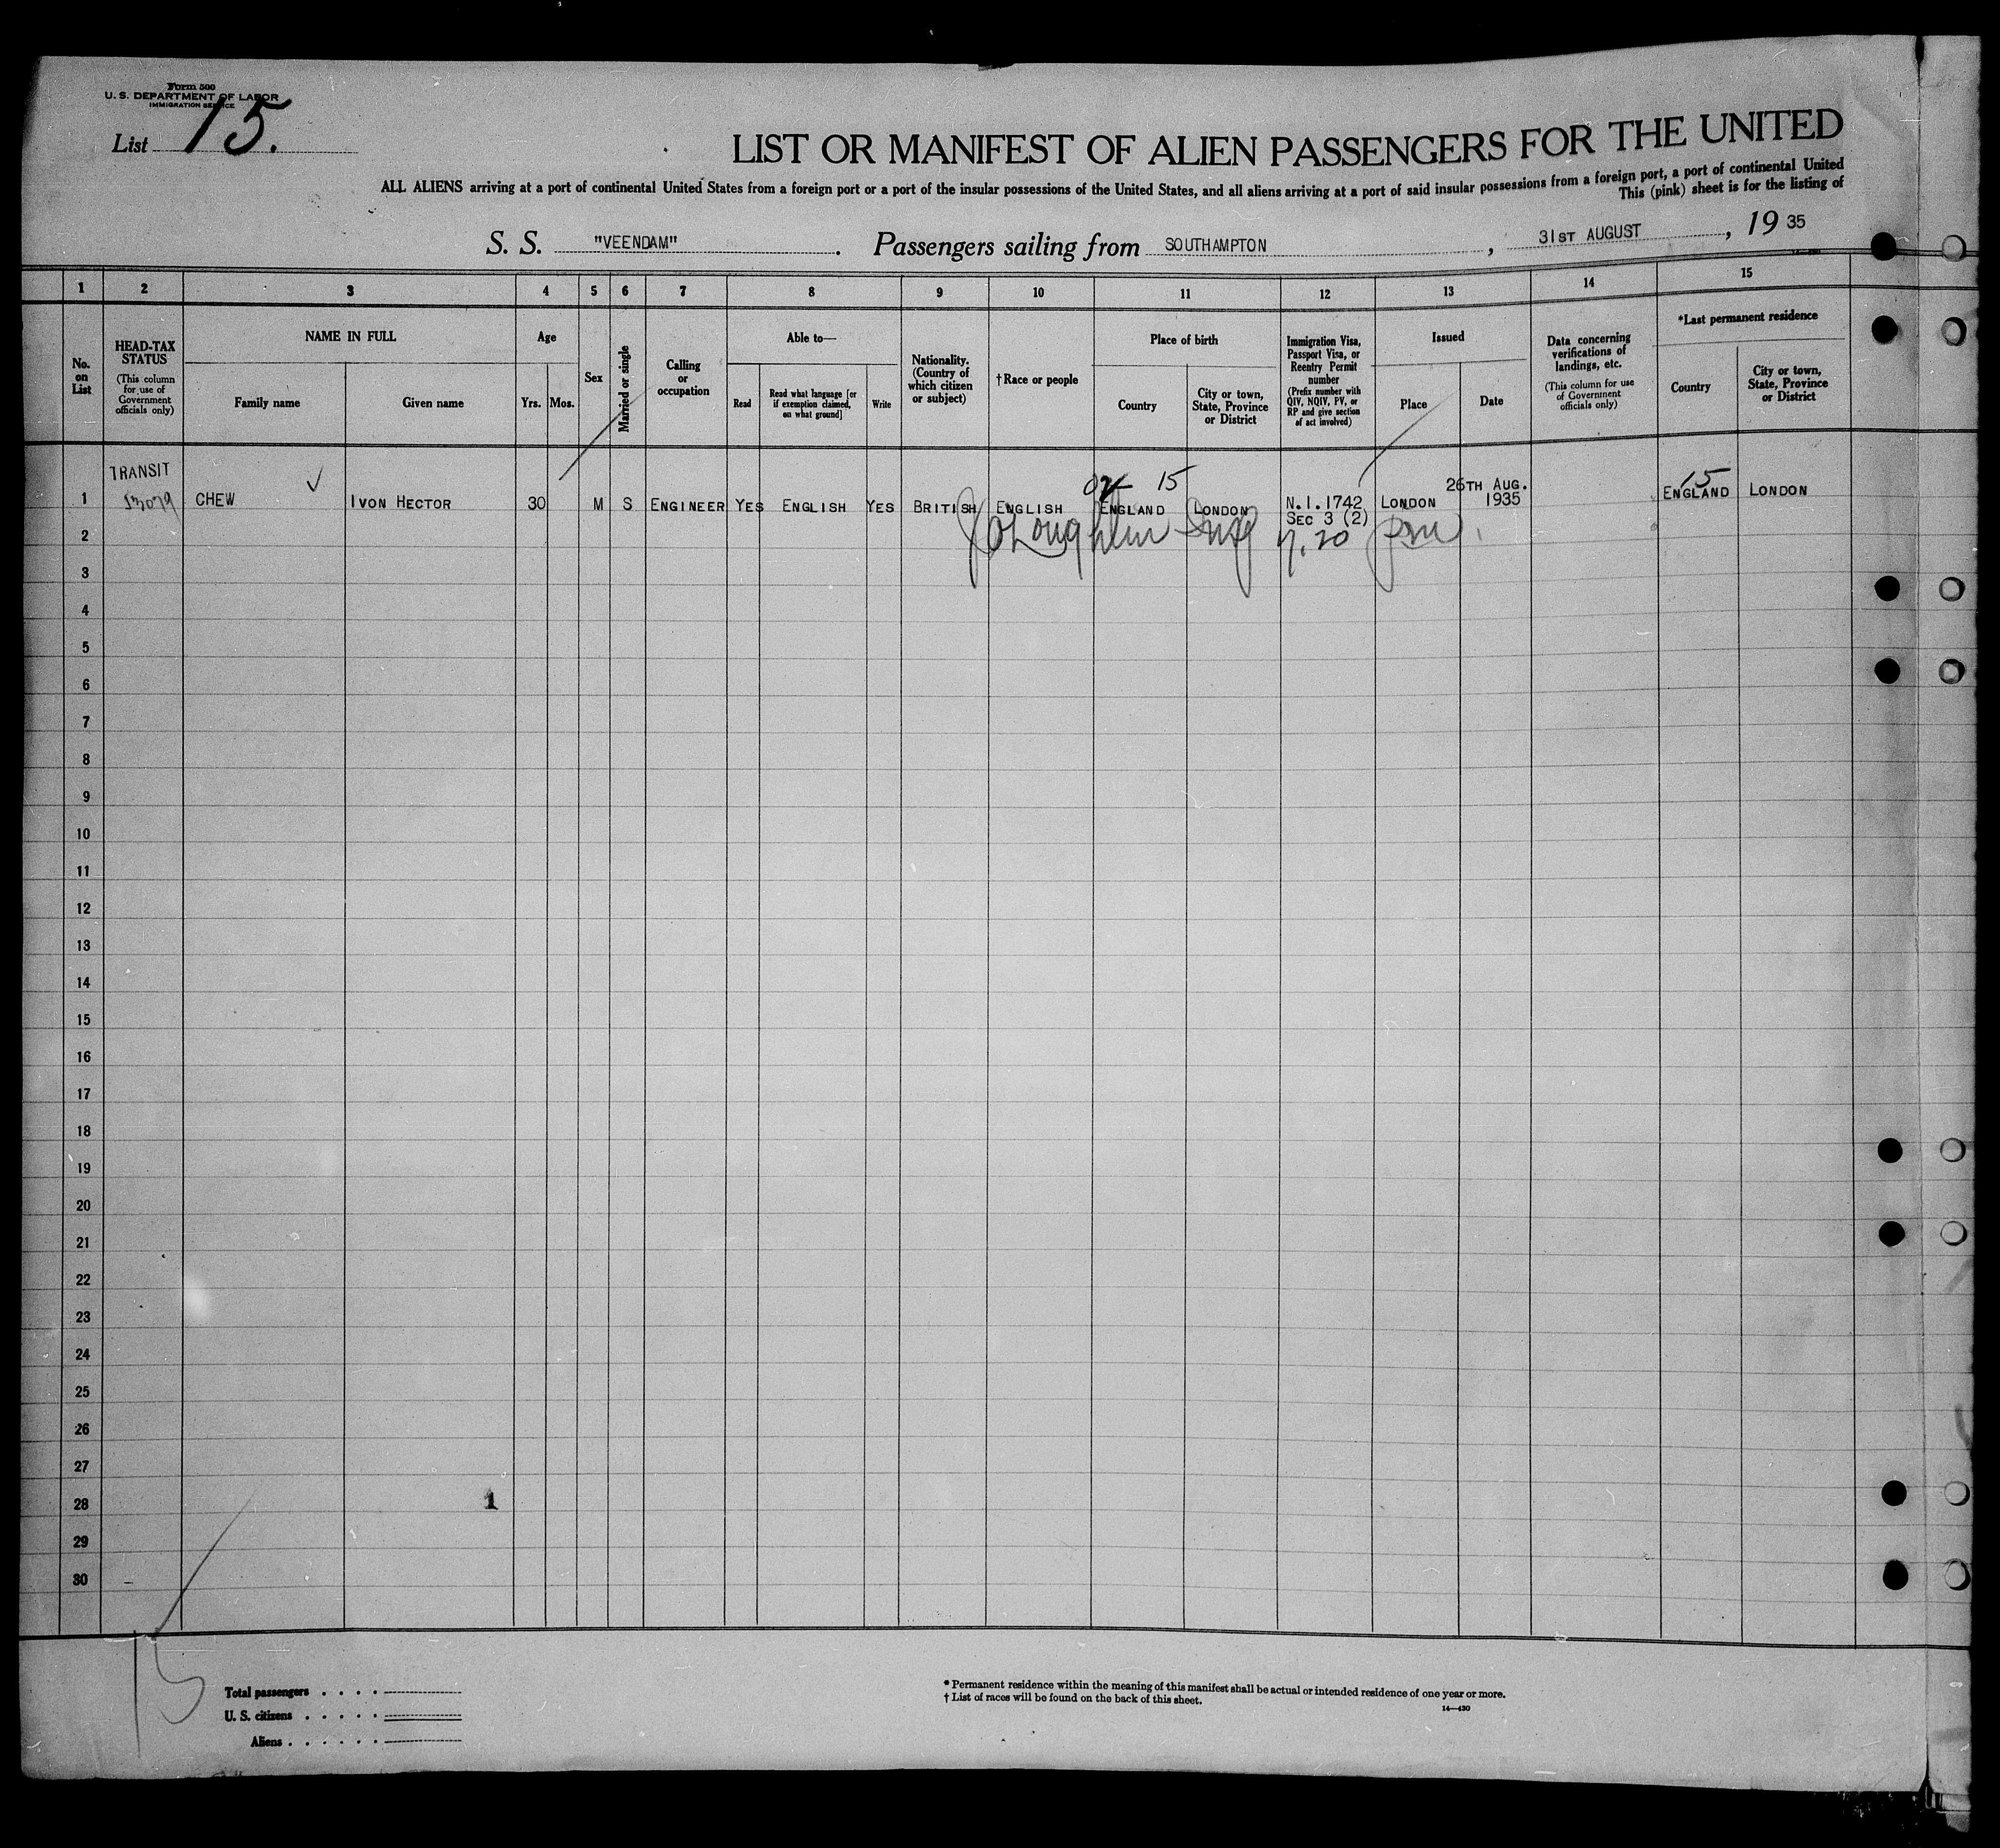 Form 500
U. S. DEPARTMENT OF LABOR
IMMIGRATION SERVICE
List 15.
LIST OR MANIFEST OF ALIEN PASSENGERS FOR THE UNITED
ALL ALIENS arriving at a port of continental United States from a foreign port or a port of the insular possessions of the United States, and all aliens arriving at a port of said insular possessions from a foreign port, a port of continental United
This (pink) sheet is for the listing of
S. S. "VEENDAM". Passengers sailing from SOUTHAMPTON, 31ST AUGUST, 19 35
1 2 3 4 5 6 7 8 9 10 11 12 13 14 15
No. on List
HEAD-TAX STATUS
(This column for use of Government officials only)
NAME IN FULL
Family name
Given name
Age
Yrs.
Mos.
Sex
Married or single
Calling or occupation
Able to—
Read
Read what language [or if exemption claimed, on what ground]
Write
Nationality. (Country of which citizen or subject)
†Race or people
Place of birth
Country
City or town, State, Province or District
Immigration Visa, Passport Visa, or Reentry Permit number
(Prefix number with QIV, NQIV, PV, or RP and give section of act involved)
Issued
Place
Date
Data concerning verifications of landings, etc.
(This column for use of Government officials only)
*Last permanent residence
Country
City or town, State, Province or District
TRANSIT
15
15
26TH AUG.
1 CHEW IVON HECTOR 30 M S ENGINEER YES ENGLISH YES BRITISH ENGLISH ENGLAND LONDON N.I.1742 LONDON 1935 ENGLAND LONDON
SEC 3 (2)
2 7.20
3
4
5
6
7
8
9
10
11
12
13
14
15
16
17
18
19
20
21
22
23
24
25
26
27
28 1
29
30
15
Total passengers
U. S. citizens
Aliens
* Permanent residence within the meaning of this manifest shall be actual or intended residence of one year or more.
† List of races will be found on the back of this sheet.
14—430